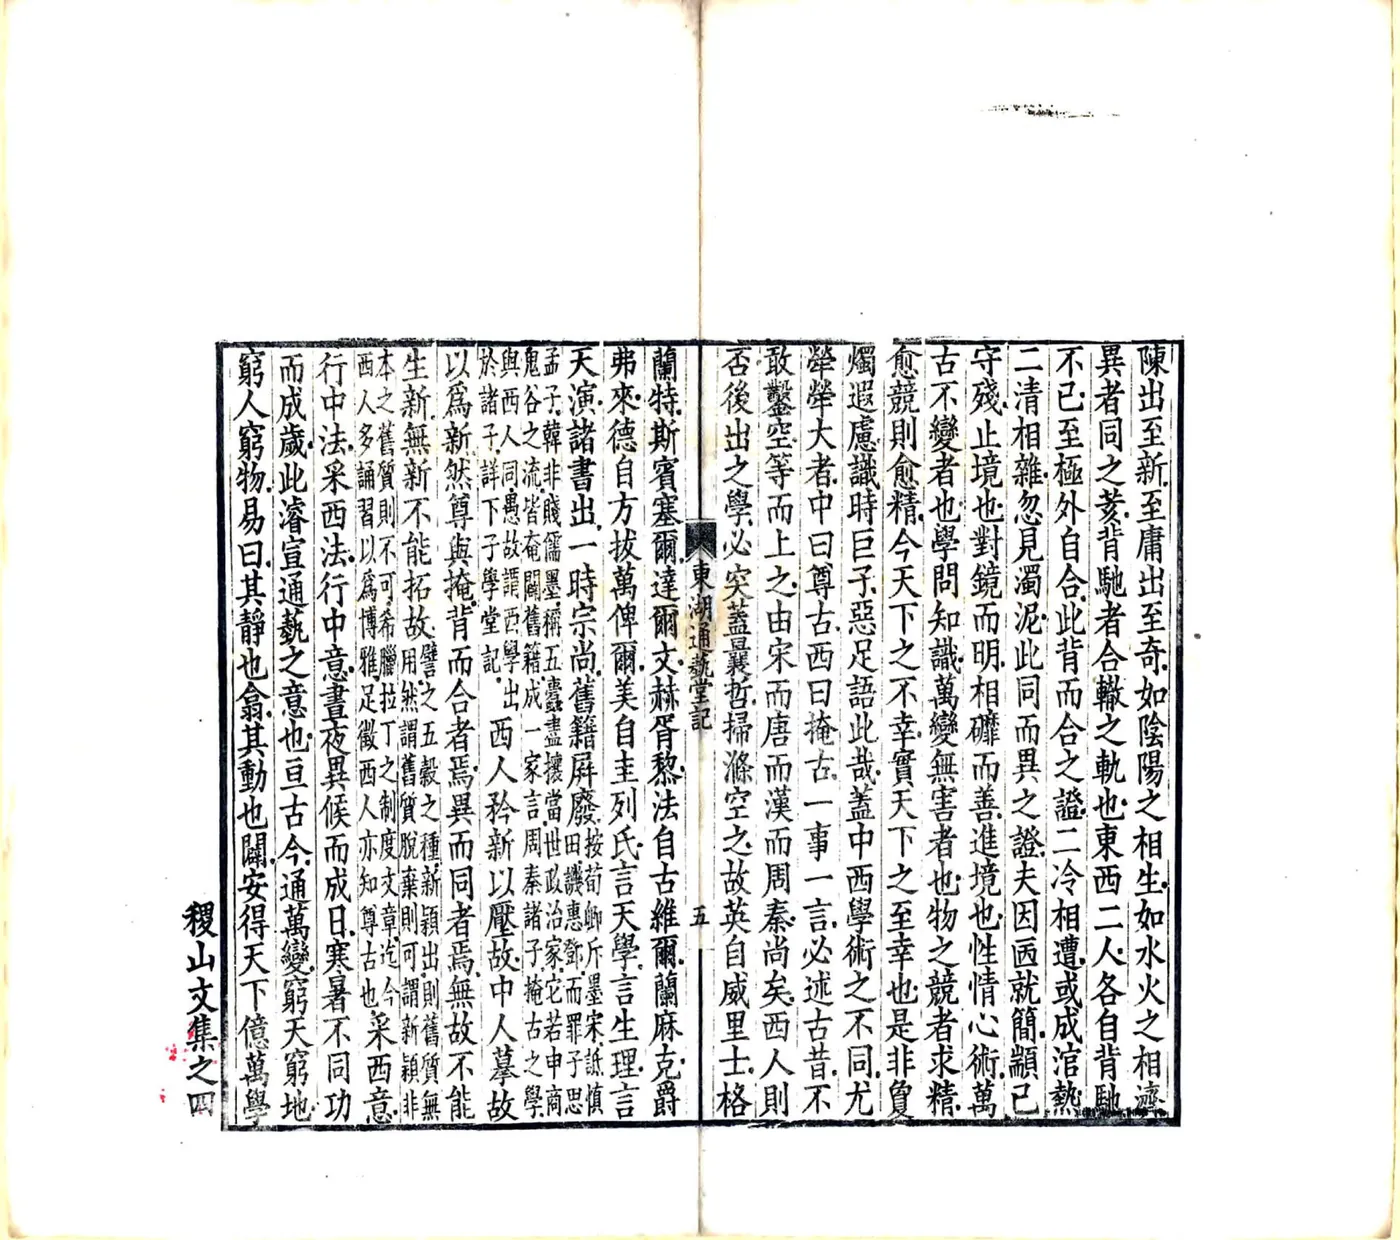 陳出至新.至庸出至奇.如陰陽之相生.如水火之相濟
異者同之荄.背馳者合轍之軌也.東西二人.各自背馳
不已.至極外自合.此背而合之證.二冷相遭.或成涫熱
二清相雜.忽見濁泥.此同而異之證.夫因陋就簡.顓己
守殘.止境也.對鏡而明.相礲而善.進境也.性情心術.萬
古不變者也.學問知識.萬變無害者也.物之競者求精.
愈競則愈精.今天下之不幸.實天下之至幸也.是非負
燭遐慮識時巨子.惡足語此哉.蓋中西學術之不同.尤
犖犖大者.中曰尊古.西曰掩古.一事一言.必述古昔.不
敢鑿空.等而上之.由宋而唐而漢而周秦尚矣.西人則
否.後出之學.必突蓋曩哲.掃滌空之.故英自威里士格
東湖通藝堂記
五
蘭特.斯賓塞爾.達爾文.赫胥黎.法自古維爾.蘭麻克爵
弗來.德自方拔.萬俾爾.美自圭列氏.言天學.言生理.言
天演.諸書出.一時宗尚.舊籍屏廢.
按荀卿斥墨宋.詆慎
田.譏惠鄧.而罪子思
孟子.韓非賤儒墨.稱五蠹.盡攘當世政治家.它若申商
鬼谷之流.皆奄闢舊籍.成一家言.周秦諸子.掩古之學
與西人同.愚故謂西學出
於諸子.詳下子學堂記.
西人矜新以壓故.中人摹故
以爲新.然尊與掩.背而合者焉.異而同者焉.無故不能
生新.無新不能拓故.
譬之五穀之種.新穎出則舊質無
用.然謂舊質脫棄則可.謂新穎非
本之舊質則不可.希臘拉丁之制度文章.迄今
西人多誦習.以爲博雅.足徵西人亦知尊古也.
采西意
行中法.采西法.行中意.晝夜異候而成日.寒暑不同功
而成歲.此濬宣通藝之意也.亘古今.通萬變.窮天窮地
窮人窮物.易曰.其靜也翕.其動也闢.安得天下億萬學
稷山文集之四